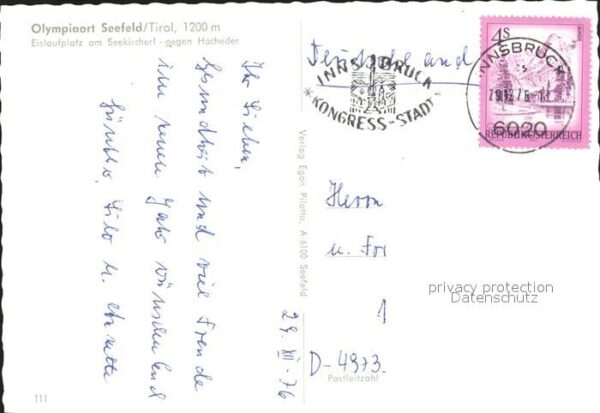 Olympiaort Seefeld/Tirol, 1200 m
Eislaufplatz am Seekircherl - gegen Hocheder
Ihr Lieben,
Gesundheit und viel Freude
im neuen Jahr wünschend
Günther, Lilo u. Annette
29. XII. 76
111
Verlag Egon Pilatto, A-6100 Seefeld
INNSBRUCK
*KONGRESS-STADT*
4S
REPUBLIK ÖSTERREICH
INNSBRUCK
29.12.76
6020
Herrn
u. Fr
1
D-4973
Postleitzahl
privacy protection
Datenschutz